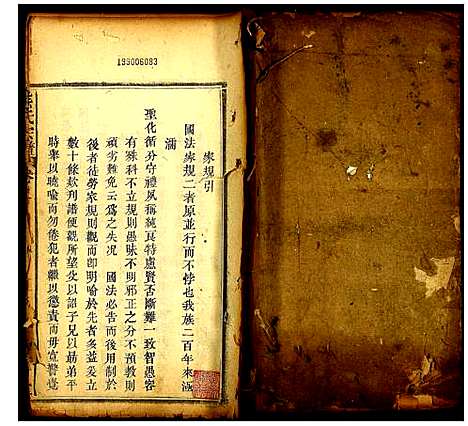 199006083
家規引
國法家規二者原並行而不悖也我族二百年來涵
濡
聖化循分守禮夙稱純良特慮賢否斷難一致智愚容
有殊科不立規則愚昧不明邪正之分不預教則
頑劣難免云為之失况　國法必告而後用制於
後者徒勞家規則觀而即明喻於先者多益爰立
數十條款刋譜便觀所望父以詔子兄以勗弟平
時舉以曉喻而勿倦犯者繼以懲責而毋寬譬覺
氏宗譜